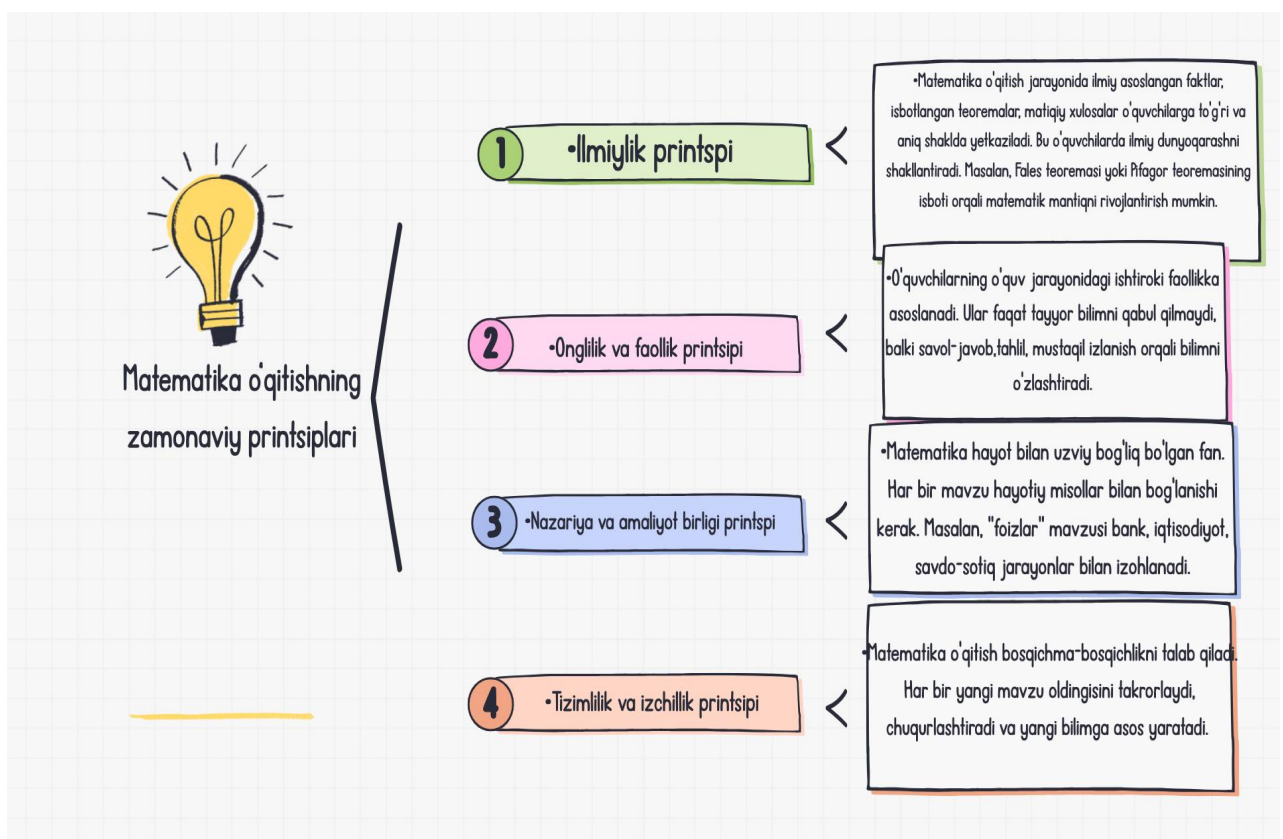 Matematika o'qitishning
zamonaviy printsiplari
1
•Ilmiylik printspi
•Matematika o'qitish jarayonida ilmiy asoslangan faktlar,
isbotlangan teoremalar, matiqiy xulosalar o'quvchilarga to'g'ri va
aniq shaklda yetkaziladi. Bu o'quvchilarda ilmiy dunyoqarashni
shakllantiradi. Masalan, Fales teoremasi yoki Pifagor teoremasining
isboti orqali matematik mantiqni rivojlantirish mumkin.
2
•Onglilik va faollik printsipi
•O'quvchilarning o'quv jarayonidagi ishtiroki faollikka
asoslanadi. Ular faqat tayyor bilimni qabul qilmaydi,
balki savol-javob,tahlil, mustaqil izlanish orqali bilimni
o'zlashtiradi.
3
•Nazariya va amaliyot birligi printspi
•Matematika hayot bilan uzviy bog'liq bo'lgan fan.
Har bir mavzu hayotiy misollar bilan bog'lanishi
kerak. Masalan, "foizlar" mavzusi bank, iqtisodiyot,
savdo-sotiq jarayonlar bilan izohlanadi.
4
•Tizimlilik va izchillik printsipi
•Matematika o'qitish bosqichma-bosqichlikni talab qiladi.
Har bir yangi mavzu oldingisini takrorlaydi,
chuqurlashtiradi va yangi bilimga asos yaratadi.